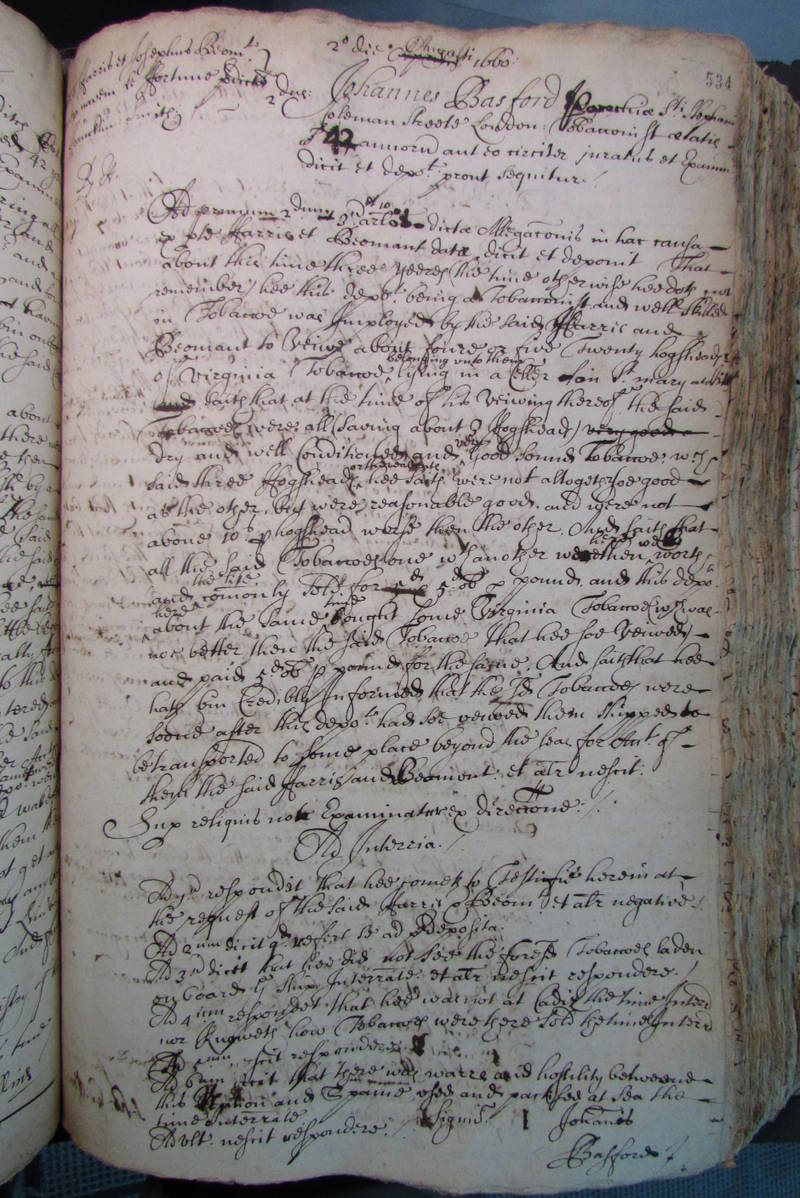 2o die Augusti 1660:
534
Harris et Josephus Beomt
Fortune
Smith
2 dus:
Johannes Basford Parochiæ Sti Stephani
Coleman Streete London Tobacconist ætatis
42 annorum aut eo circiter juratus et Examin
dicit et depot prout sequitur./
Ad primum 2dum 3rd et 10 arlos dictæ Allegaconis in hac causa
ex pte Harris et Beomant datæ dicit et deponit That
about this time three yeeres (the time otherwise hee doth not
remember) hee this depot being a Tobacconist and well skilled
in Tobaccoe was Imployed by the said Harris and
Beomant to veiwe about foure or five Twenty hogsheads
of Virginia Tobaccoe belonging unto them lying in a Celler St mary at Hill
and saith that at the time of his veiwing thereof the said
Tobaccoes were all (saving about 3 Hogsheads) very good
dry and well Conditioned and very good sound Tobaccoe wch
said three Hogsheads hee saith were not altogether soe good
as the other but were reasonable good, and were not
above 10s p hogshead worse then the other. And saith that
all the said Tobaccoes one wth another were then worth
and comonly sold here for 5d ob p pound, and this depot
about the same time bought some Virginia Tobaccoe wch was
noe better then the said Tobaccoe that hee soe veiwed
and paid 5d ob p pound for the same. And saith that hee
hath bin Credibly Informed that the sd Tobaccoes were
soone after this depot had soe veiwed them shipped to
be transported to some place beyond the sea for Acct of
them the said Harris and Beomont. et alr nescit.
Sup reliquis non Examinatur ex direccone./.
Ad Interria./
Ad 1um respondet that hee comes to Testifie herein at
the request of the said Harris p Beomt et alr negative./
Ad 2um dicit qd refert se ad prdeposita.
Ad 3um dicit that hee did not see the foresd Tobaccoes laden
on board ye ship Interrate et alr nescit respondere./
Ad 4um respondet that hee was not at Cadiz the time Interrd
nor knoweth how Tobaccoes were there sold the time Interrd
Ad 5um nescit respondere
Ad 6um dicit that there was warre and hostility betweene
this Nation and Spaine used and practised at sea the
time Interrate
Ad ult. nescit respondere./
Signu
Johannis
Basford./